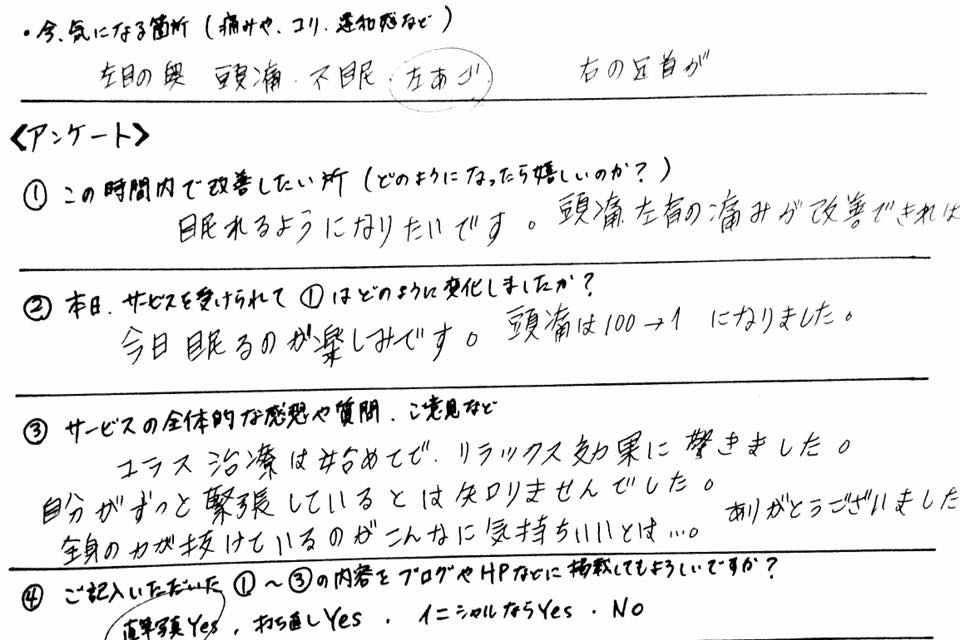 ・今、気になる箇所（痛みや、コリ、違和感など）
左目の奥 頭痛・不眠・左あご 右の足首が
〈アンケート〉
① この時間内で改善したい所（どのようになったら嬉しいのか？）
眠れるようになりたいです。頭痛、左首の痛みが改善できれば
② 本日、サービスを受けられて①はどのように変化しましたか？
今日眠るのが楽しみです。頭痛は100→1 になりました。
③ サービスの全体的な感想や質問、ご意見など
ユラス治療は始めてで、リラックス効果に驚きました。
自分がずっと緊張しているとは知りませんでした。
全身の力が抜けているのがこんなに気持ちいいとは…。 ありがとうございました
④ ご記入いただいた①〜③の内容をブログやHPなどに掲載してもよろしいですか？
直筆写真Yes 、打ち直しYes 、イニシャルならYes 、No